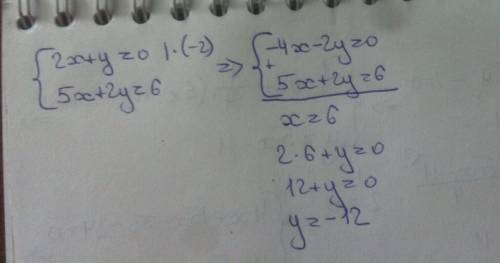 2x+y=0 |·(-2) => -4x-2y=0
5x+2y=6 + 5x+2y=6
x=6
2·6+y=0
12+y=0
y=-12